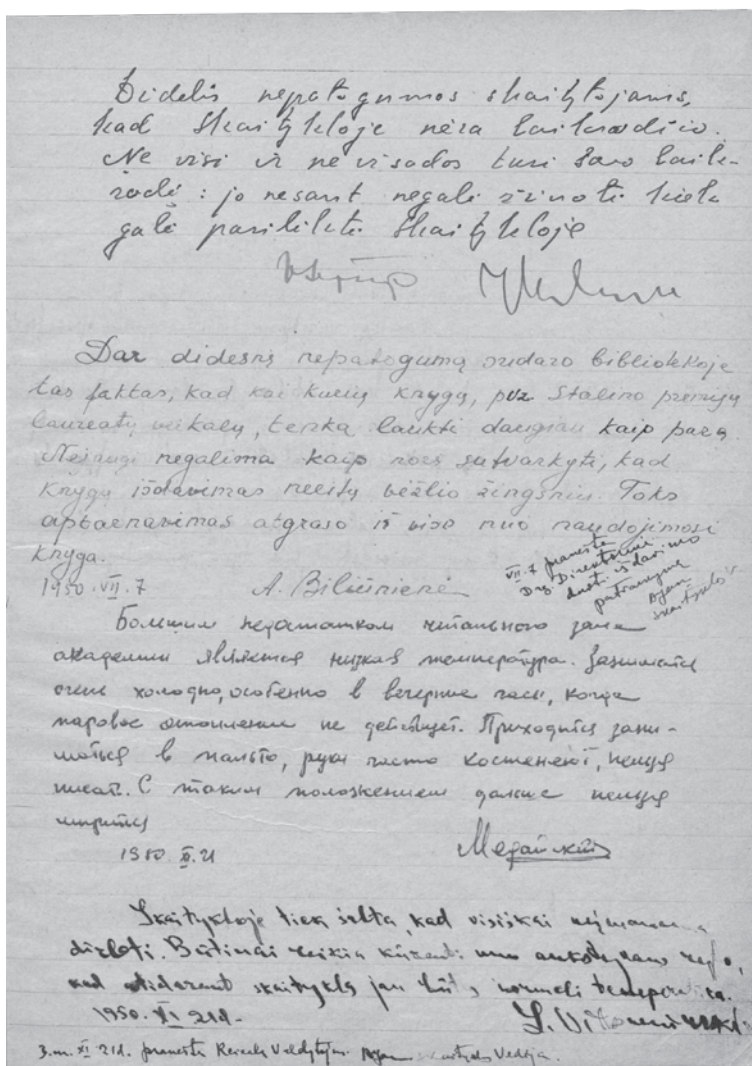 Didelis nepatogumas skaitytojams,
kad skaitykloje nėra laikrodžio.
Ne visi ir ne visados turi savo laik-
rodi: jo nesant negali žinoti kiek
gali pasilikti skaitykloje
Dar didesnį nepatogumą sudaro bibliotekoje
tas faktas, kad kai kurių knygų, pvz. Stalino premijų
laureatų veikalų, tenka laukti daugiau kaip parą.
Neįaugi negalima kaip nors sutvarkyti, kad
knygų išdavimas neeitų vėžlio žingsniu. Toks
aptarnavimas atgraso iš viso nuo naudojimosi
knyga.
1950.VII.7 A. Biliūnienė
VII.7 pranešta
Drg. Direktoriui
duoti išdavimo
Большим недостатком читального зала
академии является низкая температура. Заниматься
очень холодно, особенно в вечерние часы, когда
паровое отопление не действует. Приходится зани-
маться в пальто, руки часто костенеют, нельзя
писать. С таким положением дальше нельзя
мириться
1950. 21
Skaitykloje tiek šalta, kad visiškai neįmanoma
dirbti. Būtinai reikia kūrenti nuo ankstyvaus ryto,
kad atidarant skaityklą jau būtų normali temperatūra.
1950. XI 21d.
š.m. XI 21d. pranešta Reikalų Valdytojui. skaityklos Vedėja.